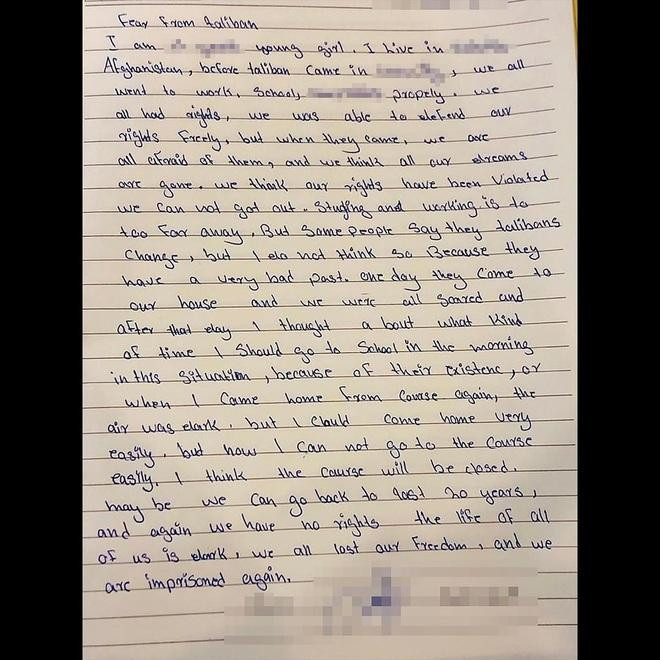 Fear From taliban
I am young girl. I Live in
Afghanistan, before taliban came in , we all
went to work, School, propely. we
all had rights, we was able to defend our
rights Freely, but when they came, we are
all afraid of them, and we think all our dreams
are gone. we think our rights have been Violated
we can not got out. Studing and working is to
too Far away. But some people Say they talibans
Change, but I do not think so Because they
have a very bad past. one day they Come to
our house and we were all Scared and
after that day I thought a bout what kind
of time I Should go to School in the morning
in this Situation, because of their Existenc, or
when I Came home From Course again, the
air was dark. but I Could come home very
easily. but now I can not go to the Course
easily. I think the Course will be closed.
may be we can go back to last 20 years,
and again we have no rights the life of all
of us is dark, we all lost our Freedom, and we
are imprisoned again.